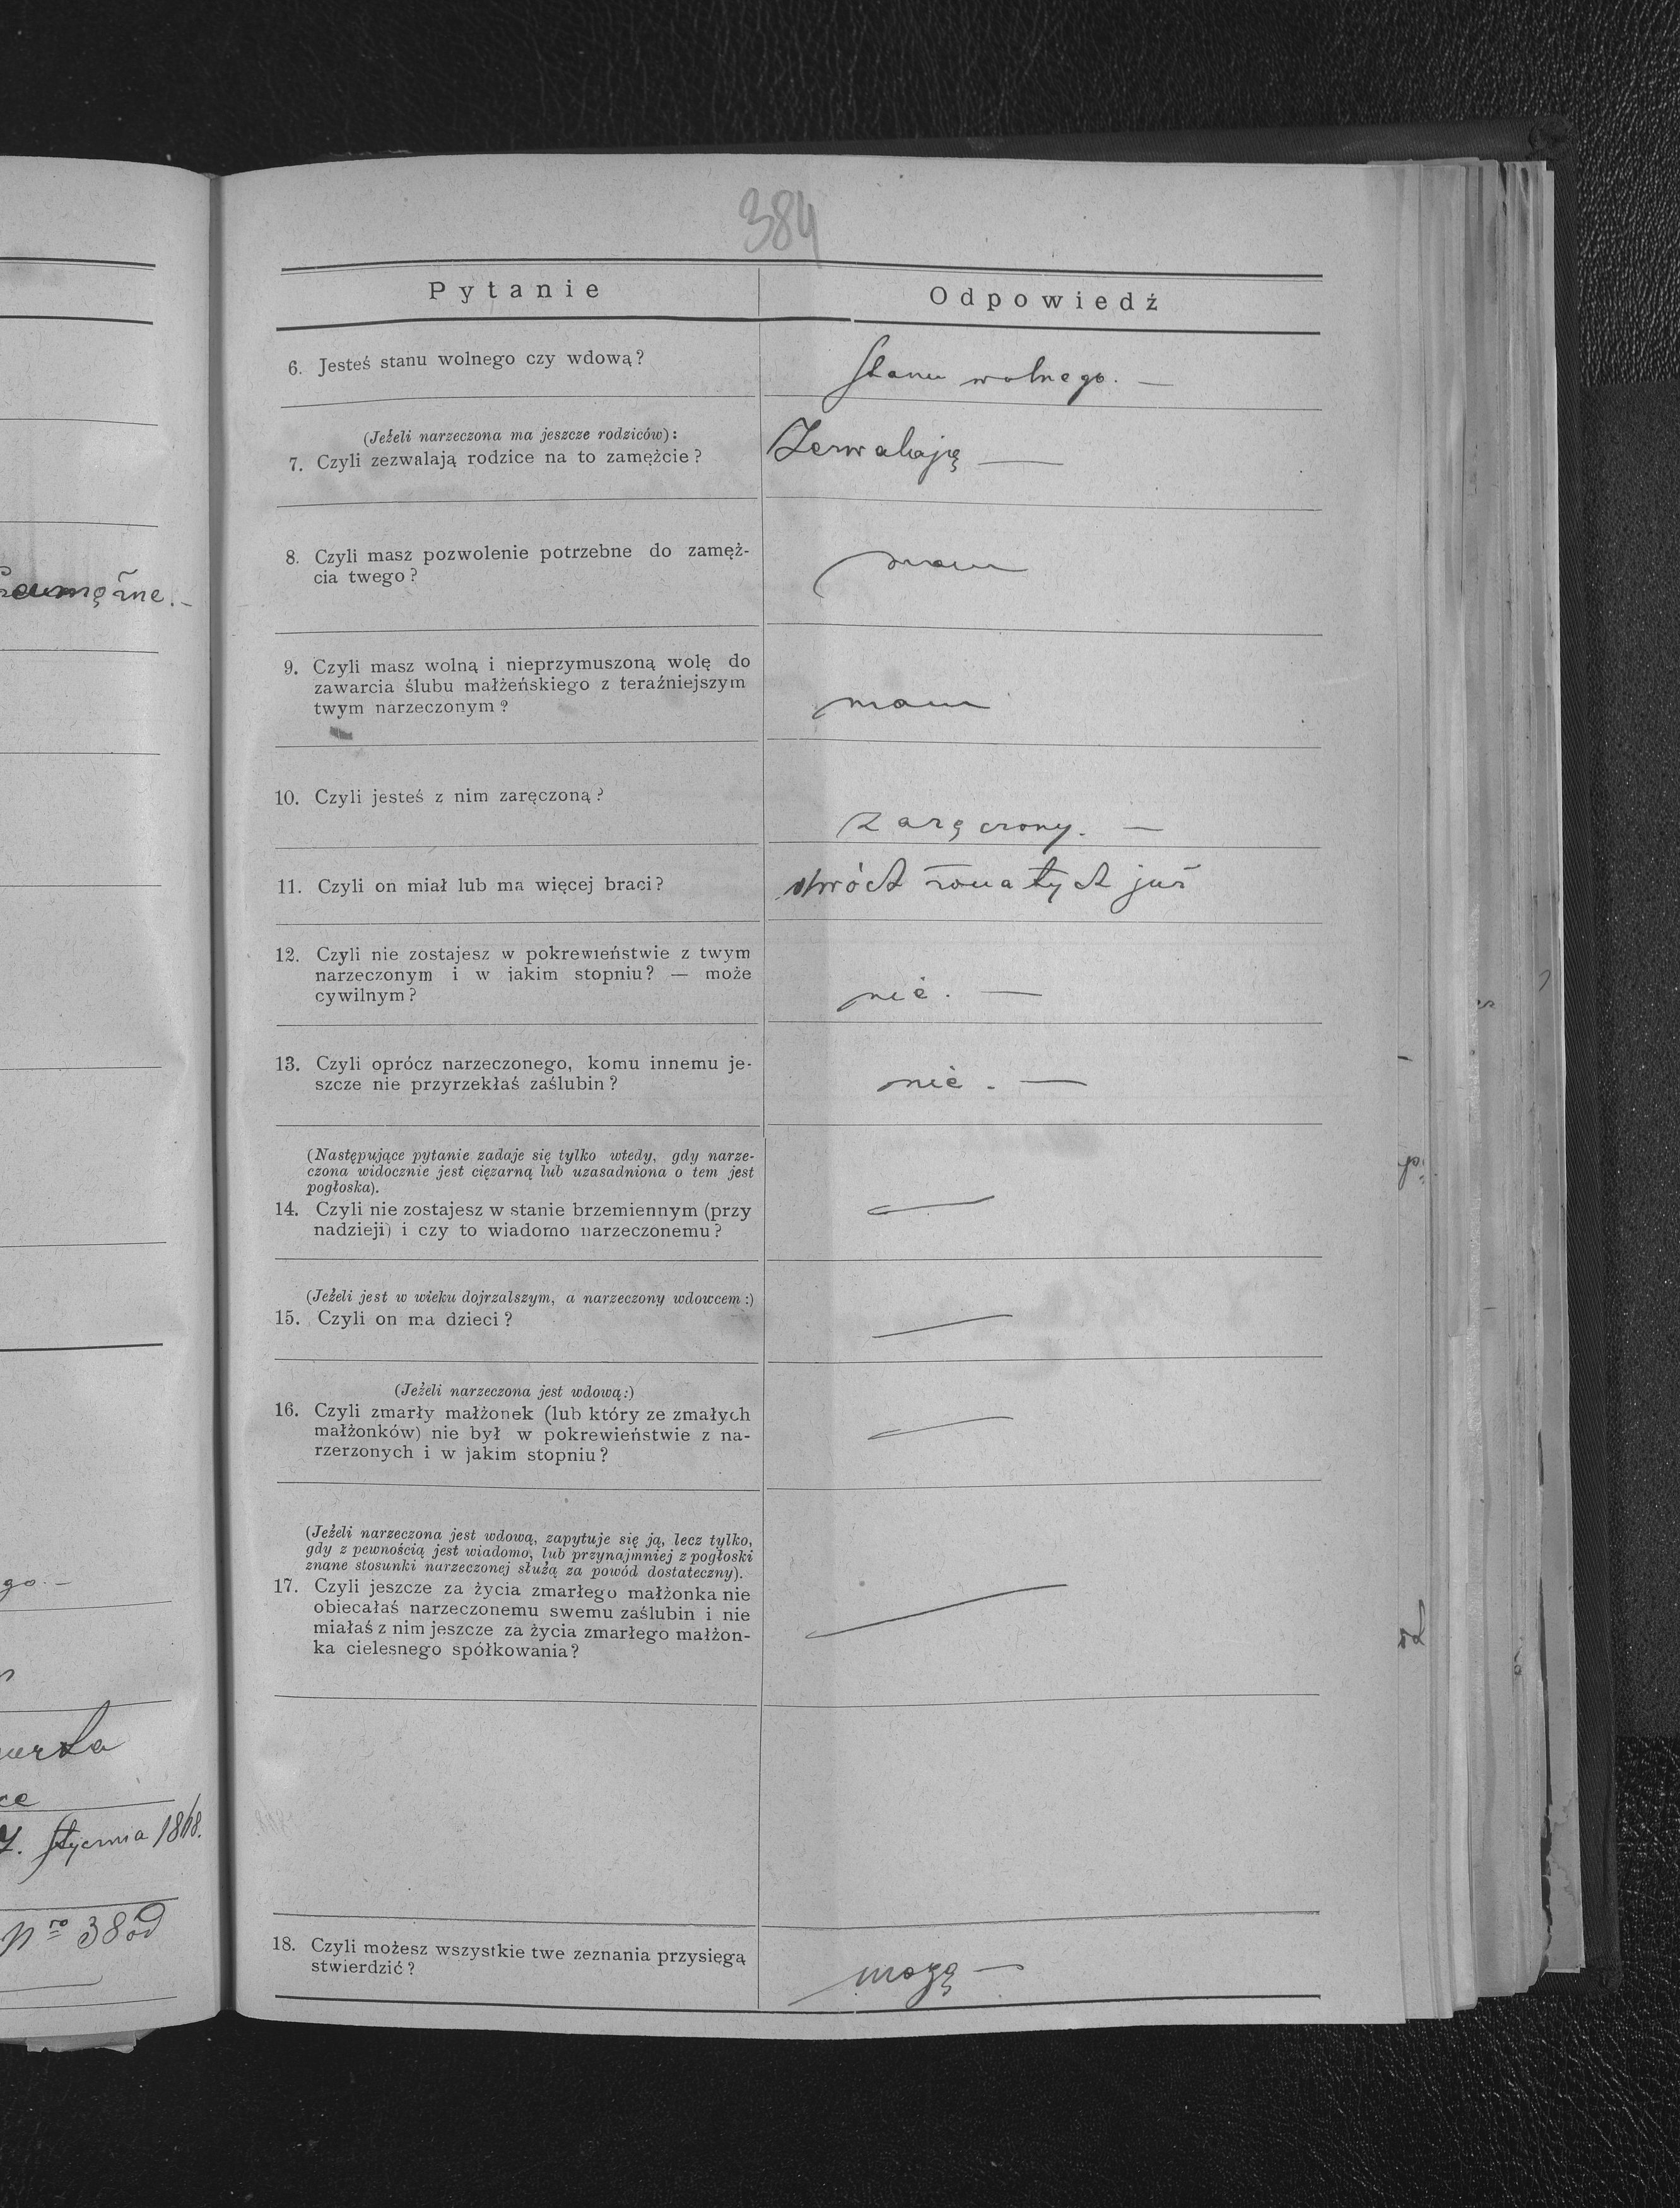 384
Pytanie
Odpowiedź
6. Jesteś stanu wolnego czy wdową?
Stanu wolnego. —
(Jeżeli narzeczona ma jeszcze rodziców):
7. Czyli zezwalają rodzice na to zamężcie?
Zezwalają —
8. Czyli masz pozwolenie potrzebne do zamęż-
cia twego?
mam
9. Czyli masz wolną i nieprzymuszoną wolę do
zawarcia ślubu małżeńskiego z teraźniejszym
twym narzeczonym?
mam
10. Czyli jesteś z nim zaręczoną?
zaręczony. —
11. Czyli on miał lub ma więcej braci?
dwóch żonatych już
12. Czyli nie zostajesz w pokrewieństwie z twym
narzeczonym i w jakim stopniu? — może
cywilnym?
nie. —
13. Czyli oprócz narzeczonego, komu innemu je-
szcze nie przyrzekłaś zaślubin?
nie. —
(Następujące pytanie zadaje się tylko wtedy, gdy narze-
czona widocznie jest ciężarną lub uzasadniona o tem jest
pogłoska).
14. Czyli nie zostajesz w stanie brzemiennym (przy
nadzieji) i czy to wiadomo narzeczonemu?
—
(Jeżeli jest w wieku dojrzalszym, a narzeczony wdowcem:)
15. Czyli on ma dzieci?
—
(Jeżeli narzeczona jest wdową:)
16. Czyli zmarły małżonek (lub który ze zmałych
małżonków) nie był w pokrewieństwie z na-
rzerzonych i w jakim stopniu?
—
(Jeżeli narzeczona jest wdową, zapytuje się ją, lecz tylko,
gdy z pewnością jest wiadomo, lub przynajmniej z pogłoski
znane stosunki narzeczonej służą za powód dostateczny).
17. Czyli jeszcze za życia zmarłego małżonka nie
obiecałaś narzeczonemu swemu zaślubin i nie
miałaś z nim jeszcze za życia zmarłego małżon-
ka cielesnego spółkowania?
—
18. Czyli możesz wszystkie twe zeznania przysięgą
stwierdzić?
mogę —
go. —
Stycznia 1818.
Nro 38